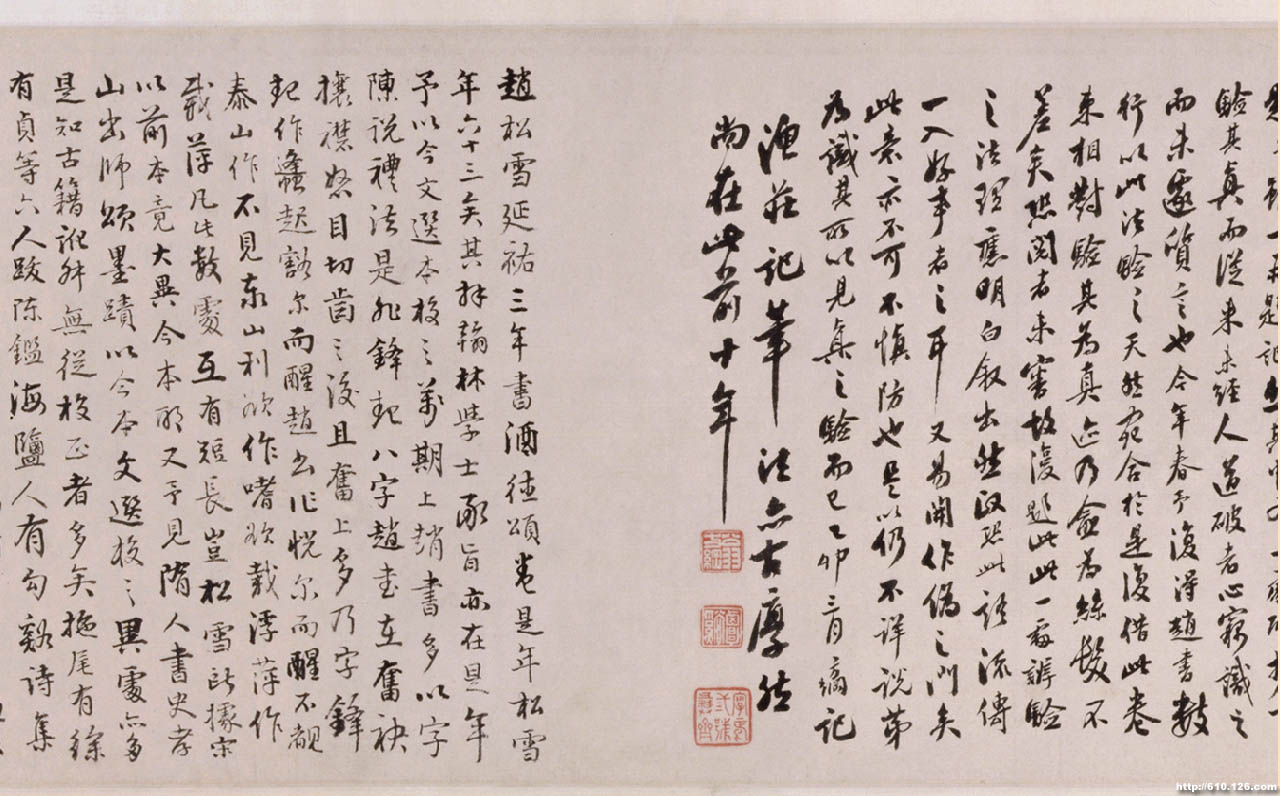 驗其真而從來未經人道破者心竊識之
而未遑質言也今年春予復得趙書數
行以此法驗之天然宛合於是復借此卷
來相對驗其為真迹乃益為絲髮不
差矣然閱者未審故復題此此一處辨驗
之法理應明白敘出然政恐此語流傳
一入好事者之耳又易開作偽之門矣
此意亦不可不慎防也是以仍不詳說第
為識其所以見真之驗而已乙卯三月
漁莊記筆法亦古厚然
尚在此前十年
趙松雪延祐三年書酒德頌卷是年松雪
年六十三矣其拜翰林學士承旨亦在是年
予以今文選本校之萬期上趙書多以字
陳說禮法是非鋒起八字趙書在奮袂
攘襟怒目切齒之後且奮上多乃字鋒
起作蠭起豁尔而醒趙書作恍尔而醒不覩
泰山作不見泰山利欲作嗜欲載浮萍作
載萍凡此數處互有短長豈松雪所據宋
以前本竟大異今本耶又予見隋人書史孝
山出師頌墨蹟以今本文選校之異處亦多
是知古籍訛舛無從校正者多矣拖尾有徐
有貞等六人跋陳鑑海鹽人有勾谿詩集
http://610.126.com